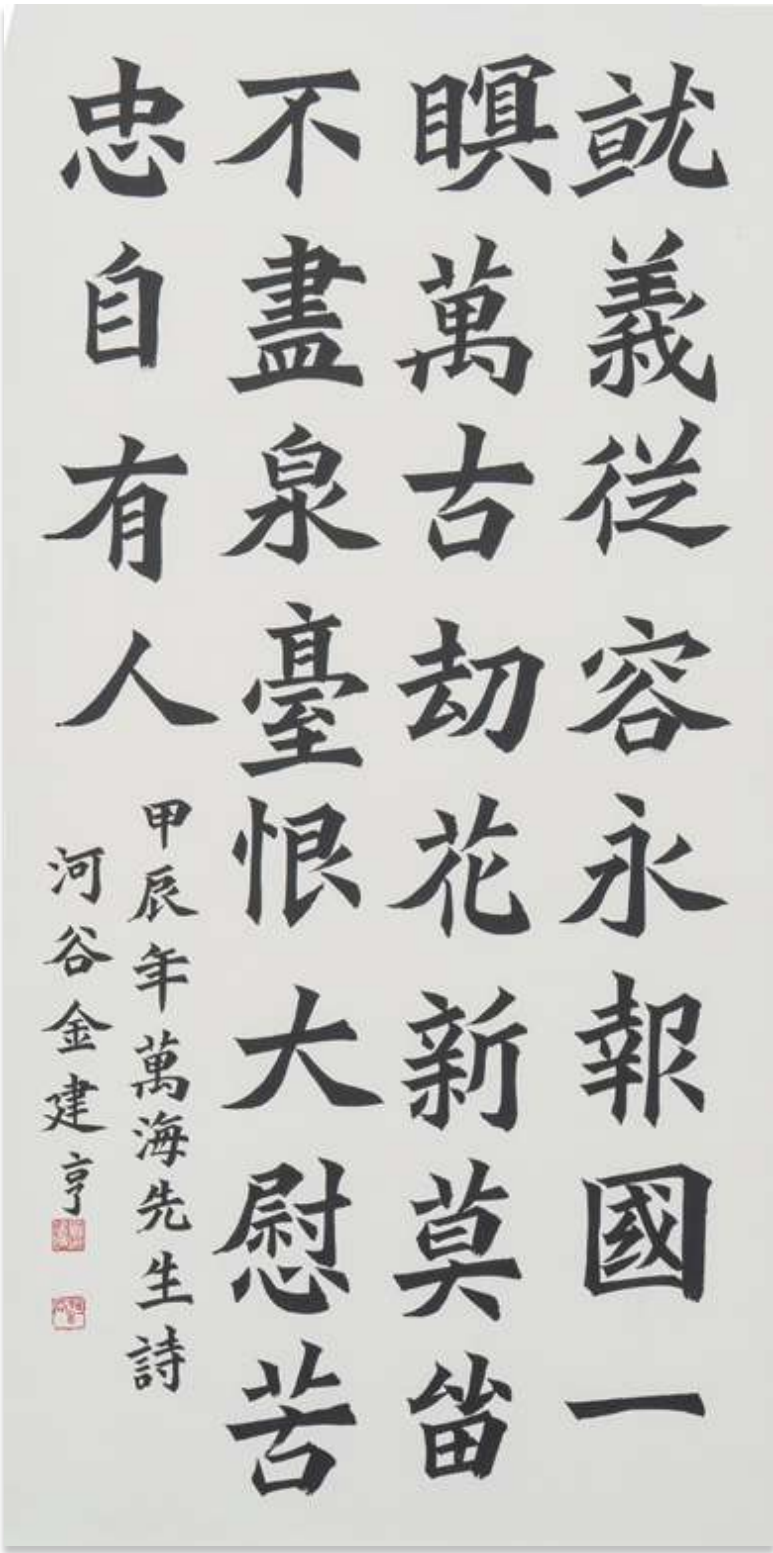 就義從容永報國一
瞑萬古刧花新莫留
不盡泉臺恨大慰苦
忠自有人
甲辰年萬海先生詩
河谷金建亨